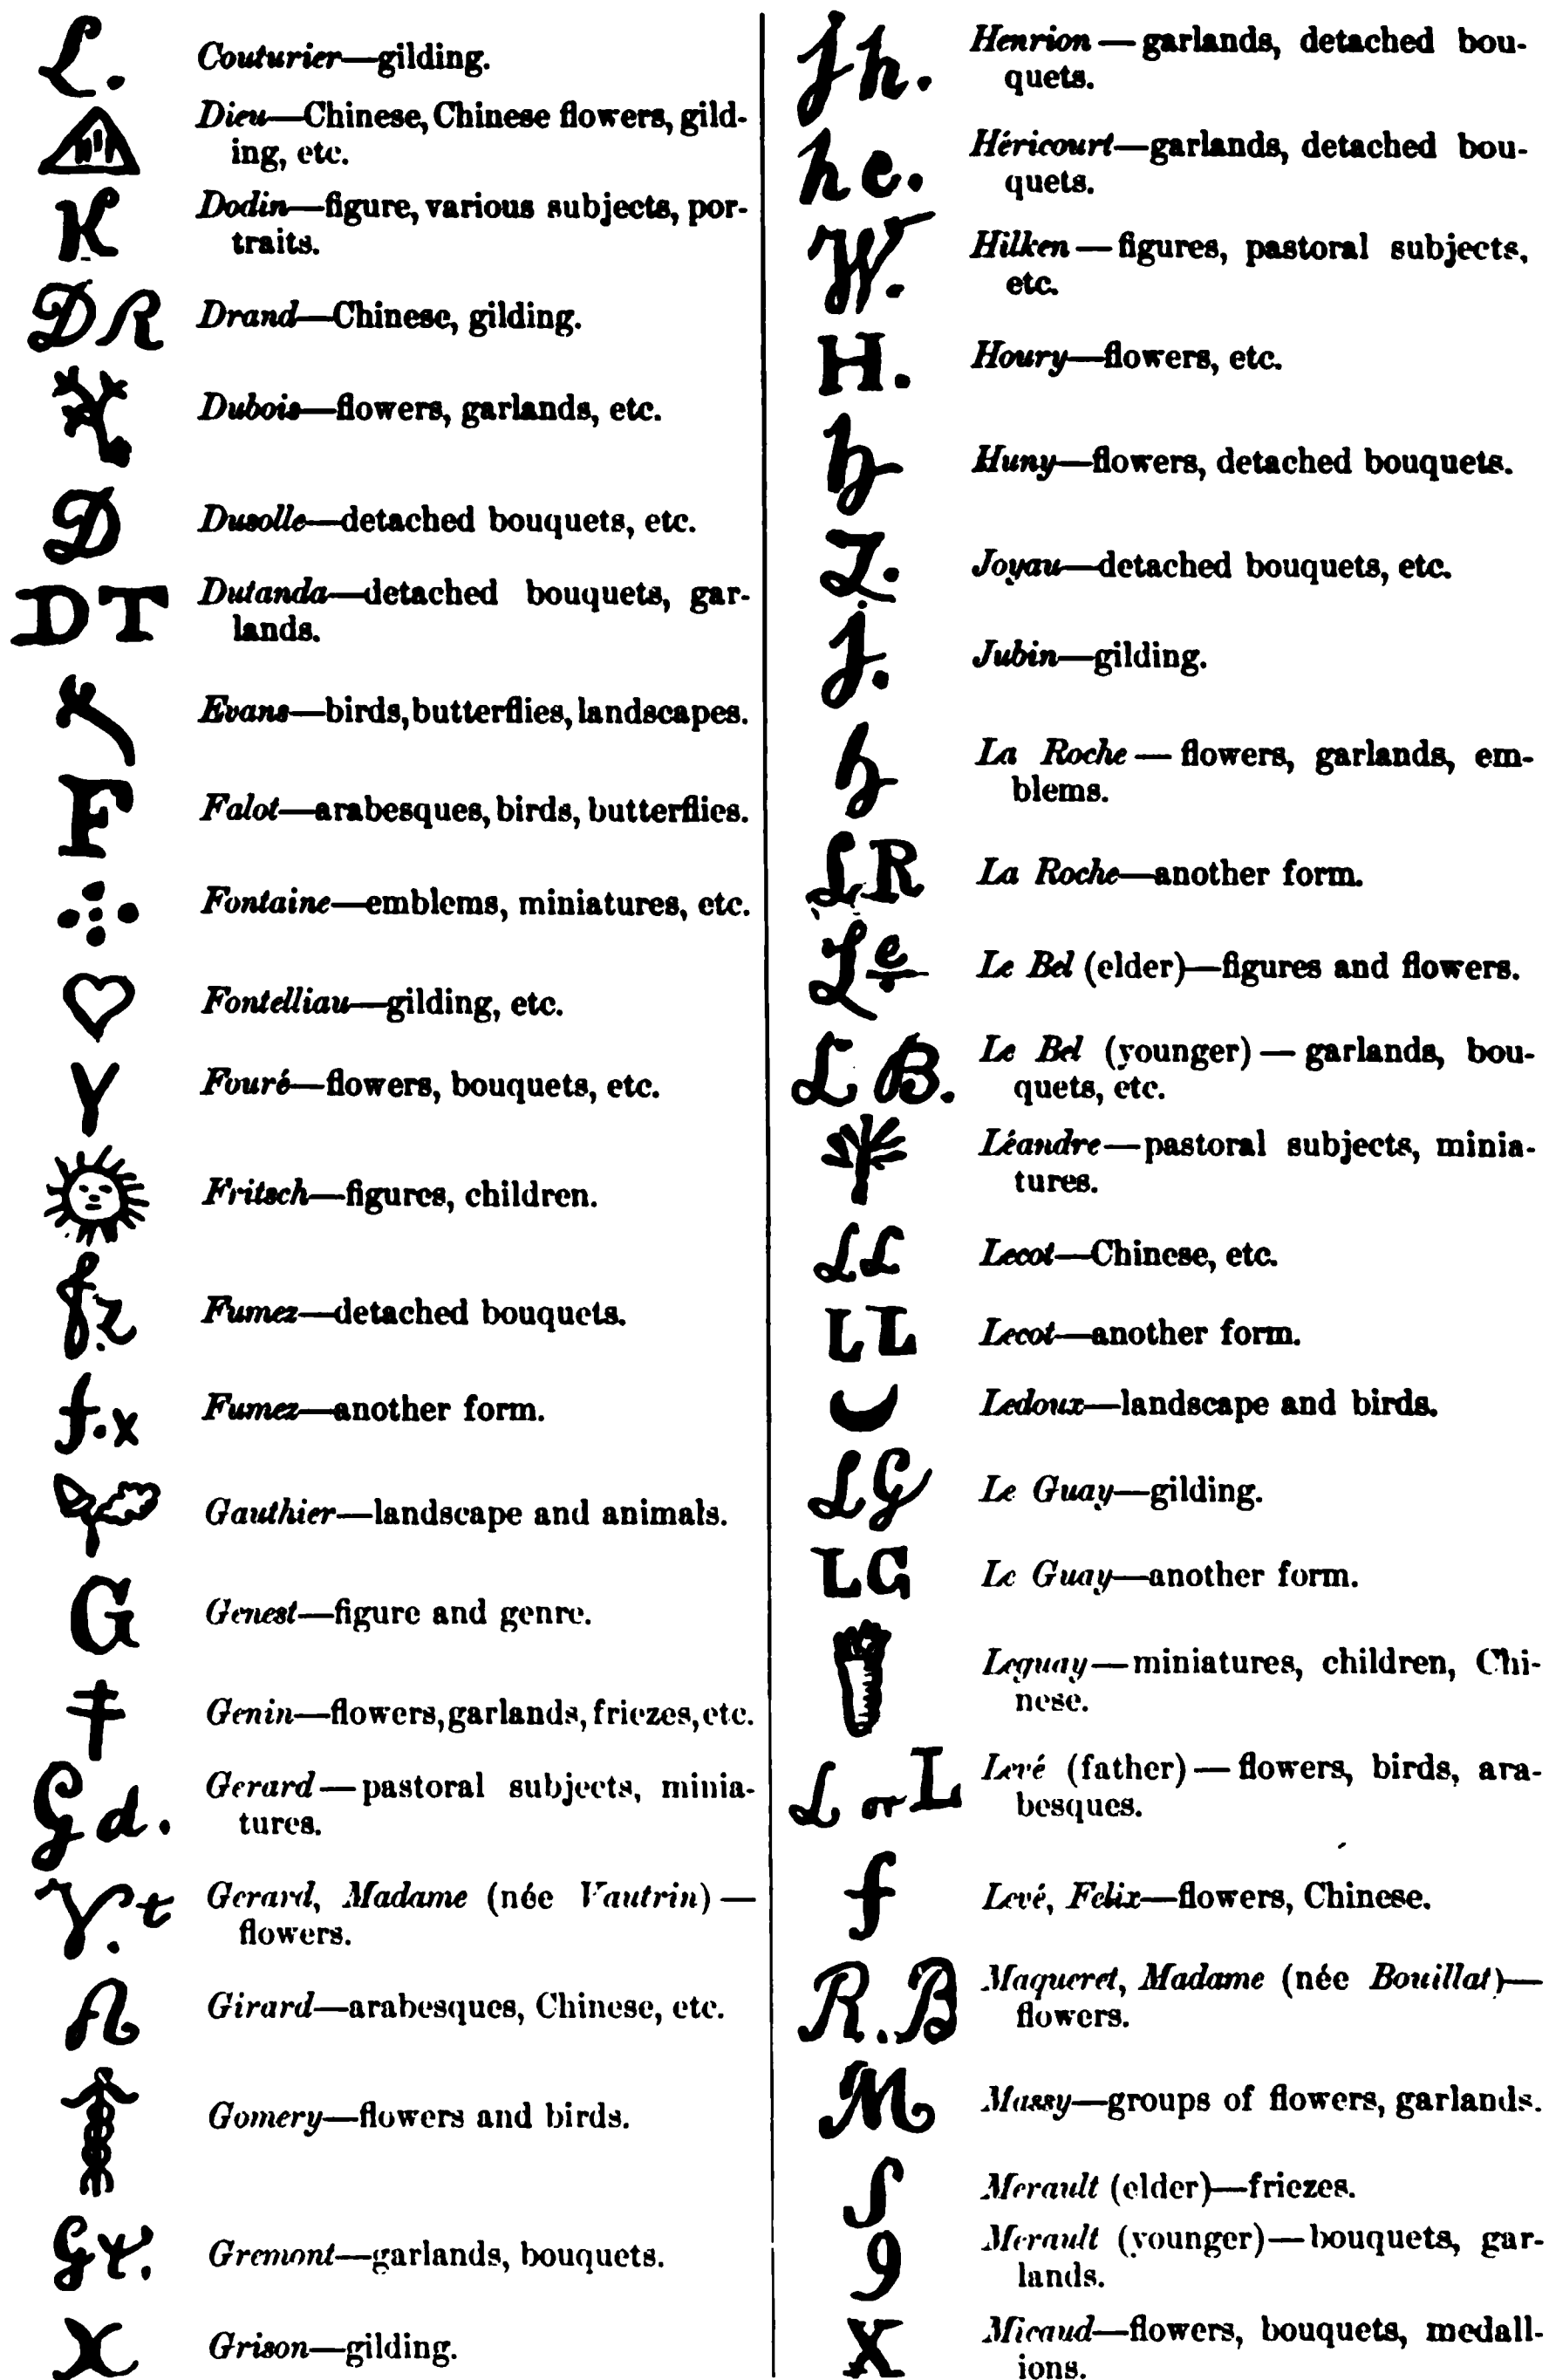 L. Couturier—gilding.
Dieu—Chinese, Chinese flowers, gild-
ing, etc.
K Dodin—figure, various subjects, por-
traits.
DR Drand—Chinese, gilding.
Dubois—flowers, garlands, etc.
D Dusolle—detached bouquets, etc.
DT Dutanda—detached bouquets, gar-
lands.
Evans—birds, butterflies, landscapes.
F Falot—arabesques, birds, butterflies.
Fontaine—emblems, miniatures, etc.
Fontelliau—gilding, etc.
Y Fouré—flowers, bouquets, etc.
Fritsch—figures, children.
f.z Fumez—detached bouquets.
f.x Fumez—another form.
Gauthier—landscape and animals.
G Genest—figure and genre.
Genin—flowers, garlands, friezes, etc.
Gd. Gerard—pastoral subjects, minia-
tures.
V.t Gerard, Madame (née Vautrin)—
flowers.
Girard—arabesques, Chinese, etc.
Gomery—flowers and birds.
Gt. Gremont—garlands, bouquets.
X Grison—gilding.
jh. Henrion—garlands, detached bou-
quets.
hc. Héricourt—garlands, detached bou-
quets.
W. Hilken—figures, pastoral subjects,
etc.
H. Houry—flowers, etc.
h Huny—flowers, detached bouquets.
Z. Joyau—detached bouquets, etc.
j. Jubin—gilding.
h La Roche—flowers, garlands, em-
blems.
LR La Roche—another form.
Le Le Bel (elder)—figures and flowers.
LB. Le Bel (younger)—garlands, bou-
quets, etc.
Léandre—pastoral subjects, minia-
tures.
LL Lecot—Chinese, etc.
LL Lecot—another form.
Ledoux—landscape and birds.
LG Le Guay—gilding.
LG Le Guay—another form.
Leguay—miniatures, children, Chi-
nese.
L or L Levé (father)—flowers, birds, ara-
besques.
f Levé, Felix—flowers, Chinese.
R.B Maqueret, Madame (née Bouillat)—
flowers.
M Massy—groups of flowers, garlands.
S Merault (elder)—friezes.
9 Merault (younger)—bouquets, gar-
lands.
X Micaud—flowers, bouquets, medall-
ions.